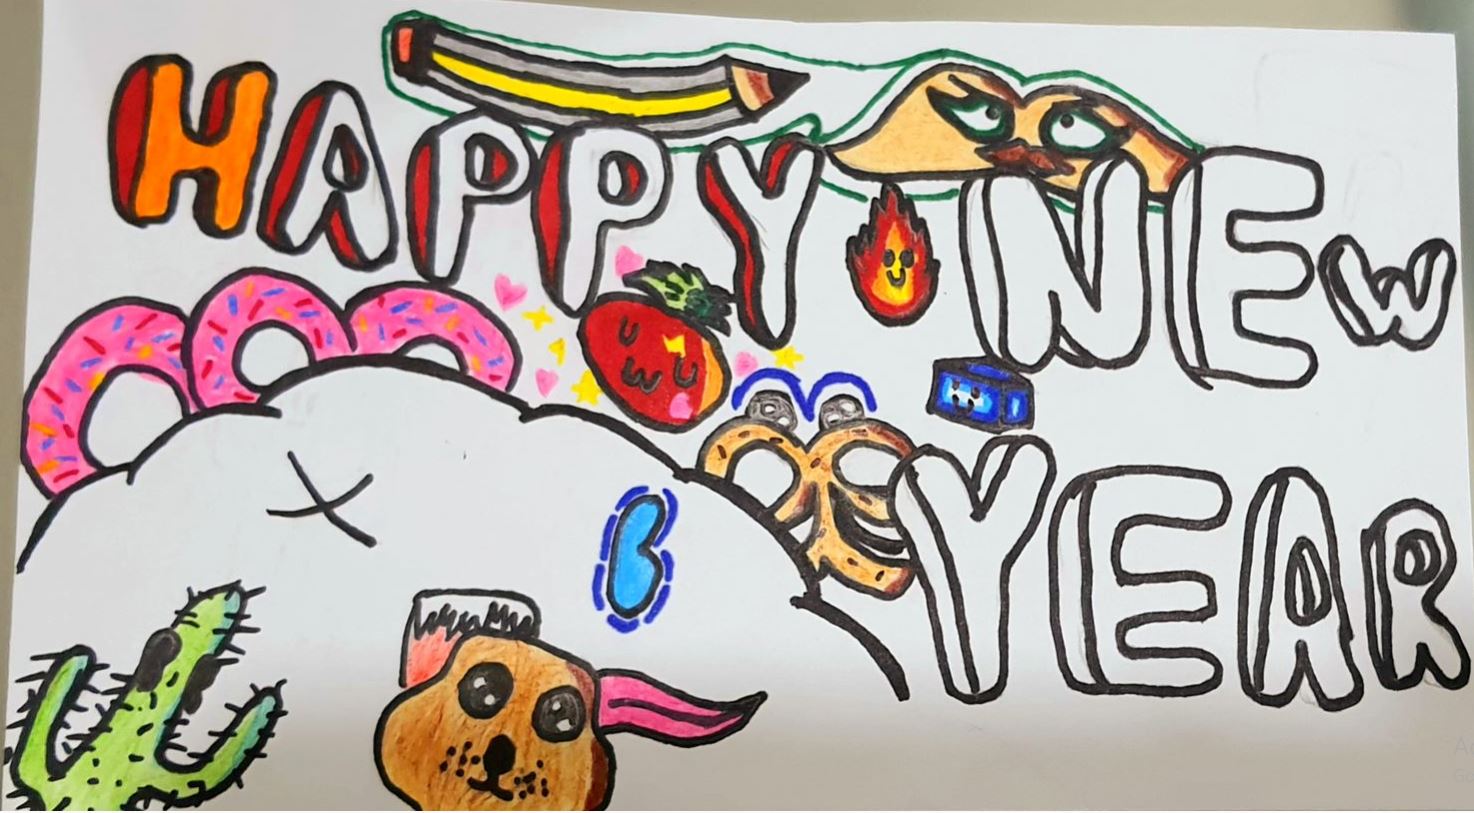 HAPPY NEw
YEAR